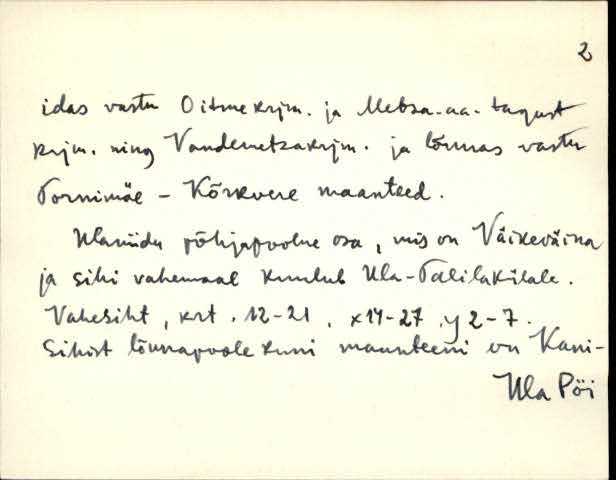 2
idas vastu Oitme krjm. ja Metsa-aa-tagust
krjm. ning Vandemetsakrjm. ja lõunas vastu
Tornimäe - Kõrkvere maanteed.
Ulaniidu põhjapoolne osa, mis on Väikeväina
ja sihi vahemaal kuulub Ula-Talilakülale.
Vahesiht, krt. 12-21. x14-27 y 2-7.
Sihist lõunapoole kuni maanteeni on Kani-
Ula Pöi